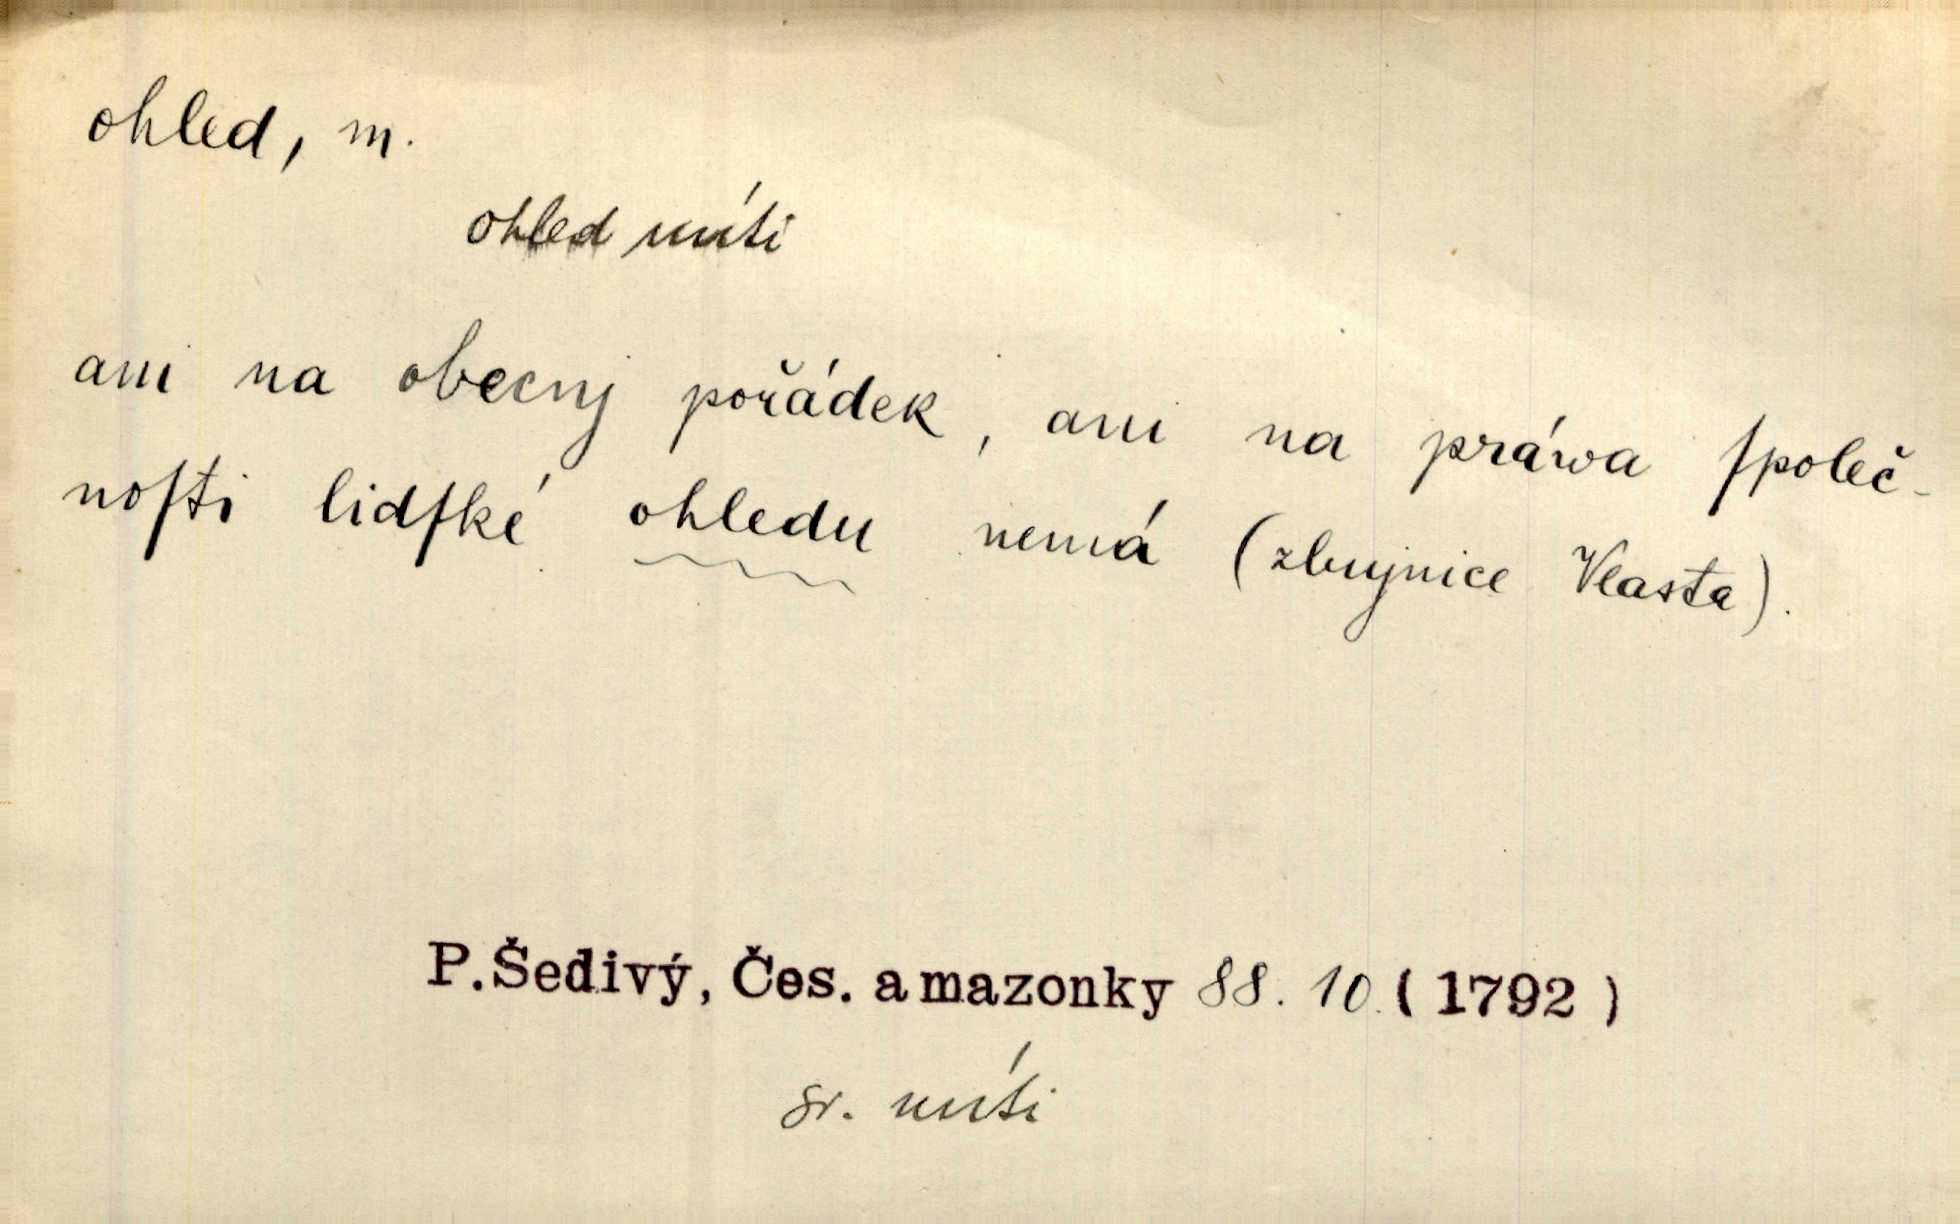 ohled, m.
ohled míti
ani na obecnj pořádek, ani na práwa ſpoleč-
noſti lidſké ohledu nemá (zbujnice Vlasta).
P. Šedivý, Čes. amazonky 88. 10. (1792)
sr. míti